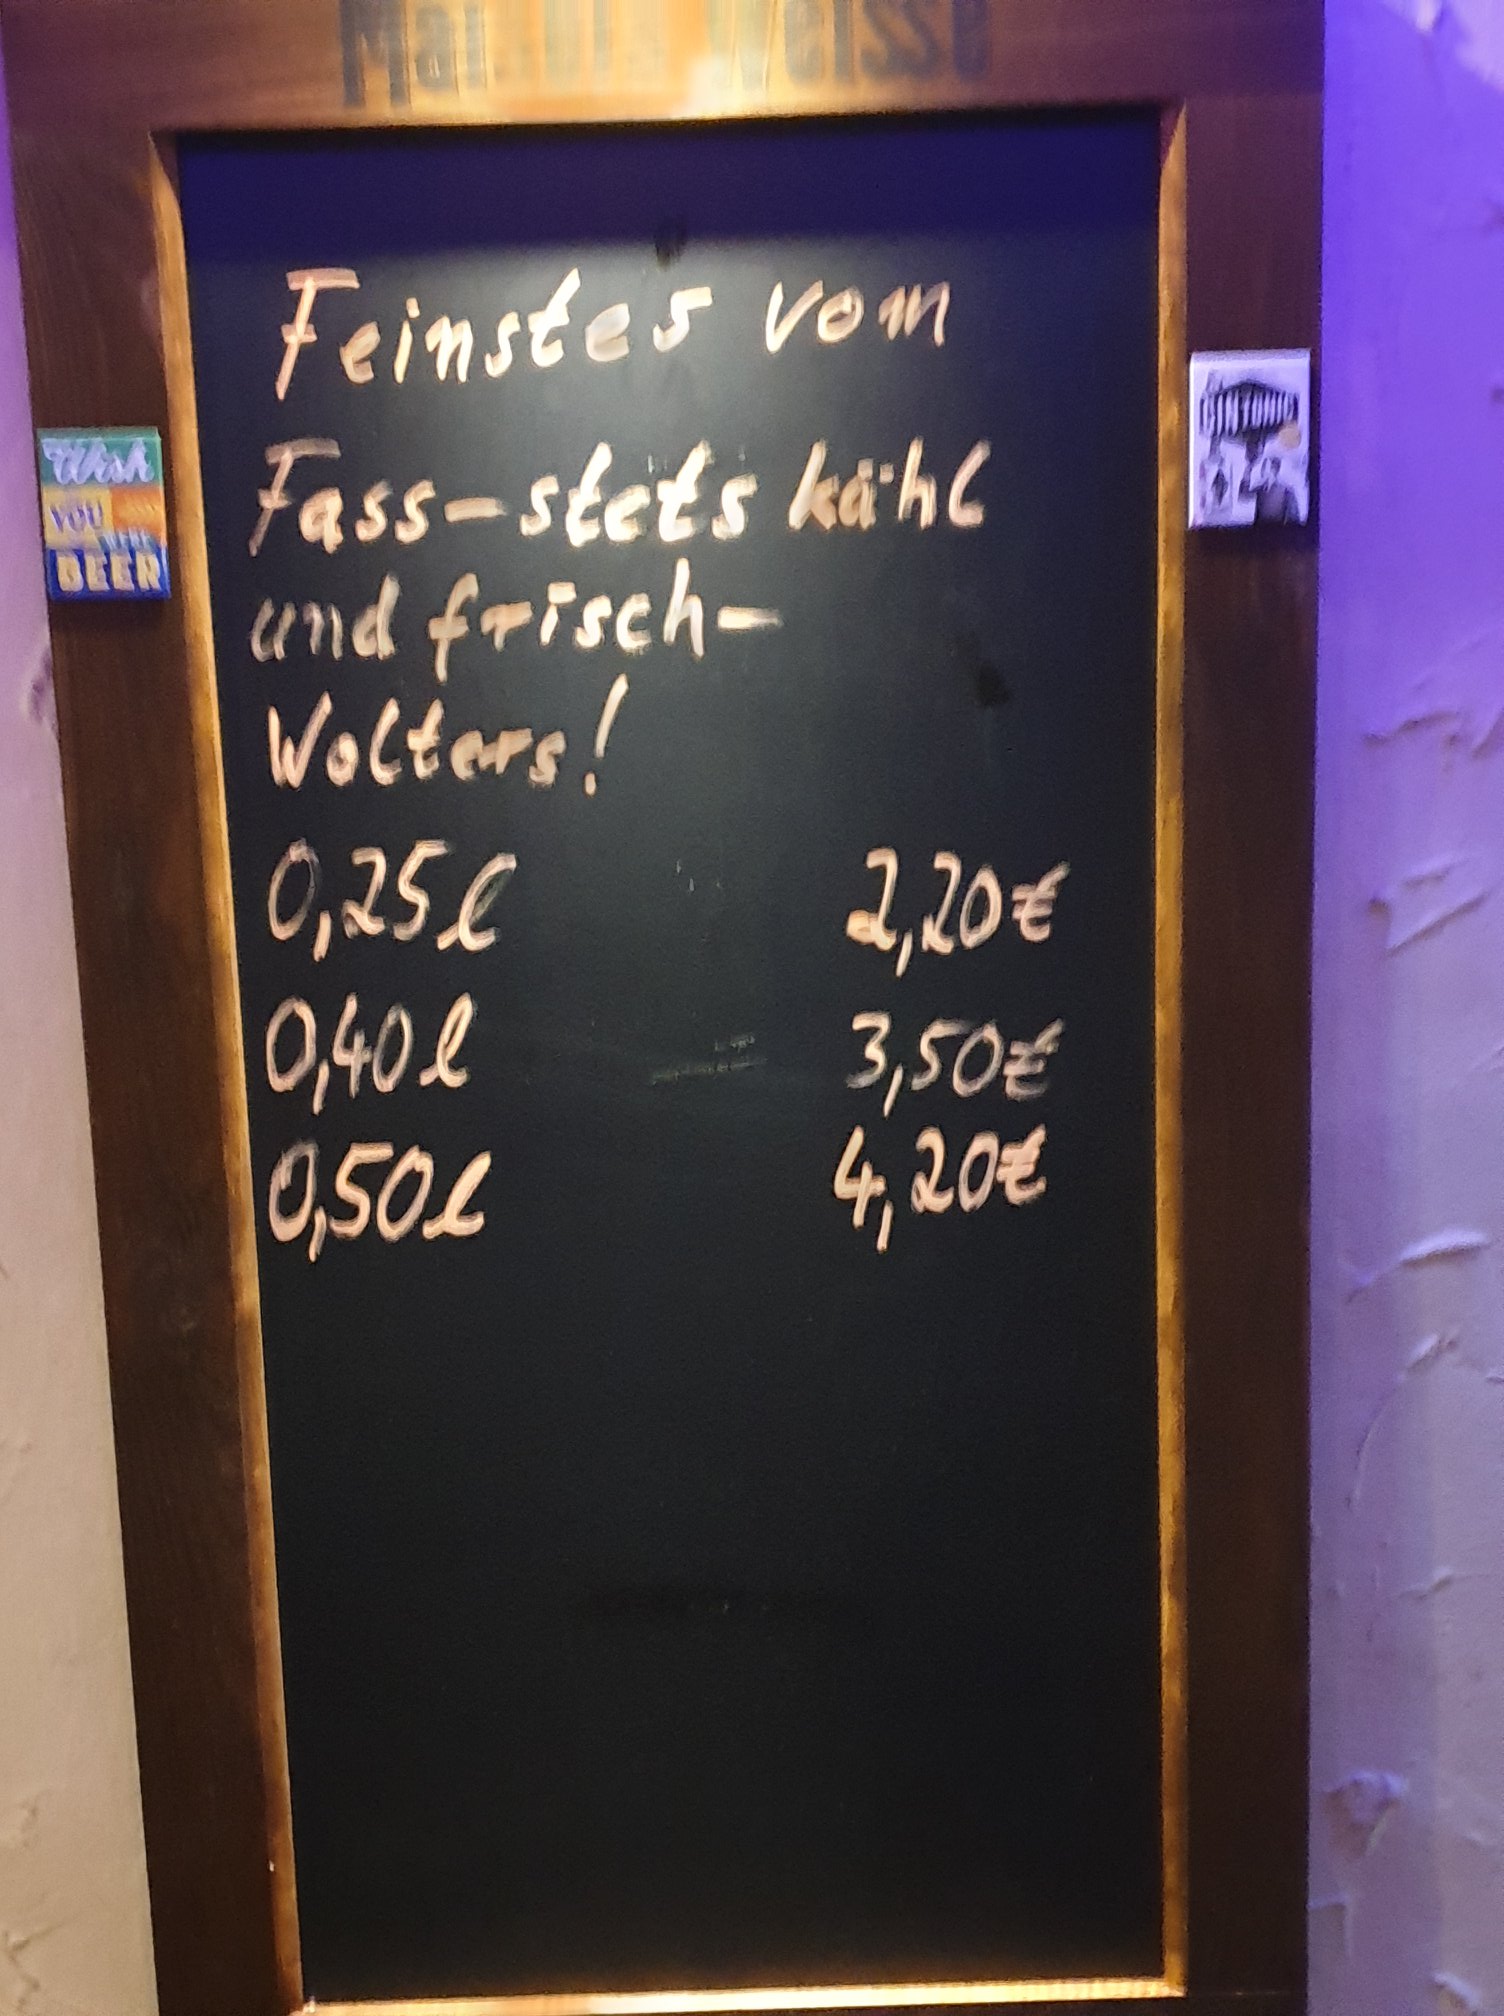 Weisse
Feinstes vom
Fass-stets kühl
und frisch-
Wolters!
0,25l 2,20€
0,40l 3,50€
0,50l 4,20€
Wish
YOU
WERE
BEER
GINTONIC